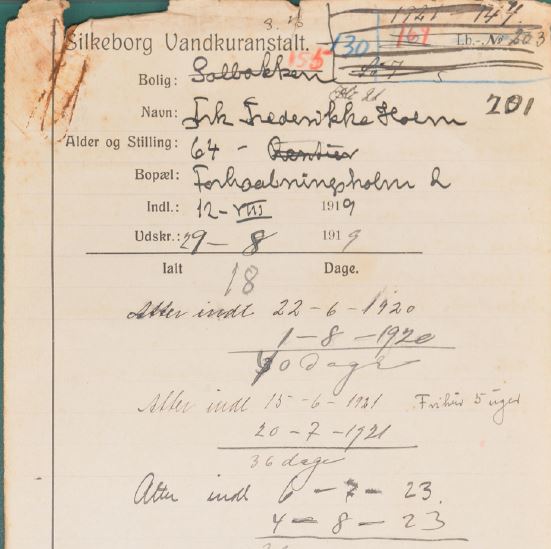 8.
1921 - 147.
Silkeborg Vandkuranstalt. 155 130 161 Lb.-No 203
Bolig: Solbakken No 7
201
Navn: Frk Frederikke Holm
Alder og Stilling: 64 - Rentier
Bopæl: Forhaabningsholm
Indl.: 12-VIII 1919
Udskr.: 29-8 1919
Ialt 18 Dage.
Atter indl 22-6-1920
1-8-1920
40 dage
Atter indl 15-6-1921 Frikur 5 uger
20-7-1921
36 dage
Atter indl 6-7-23.
4-8-23